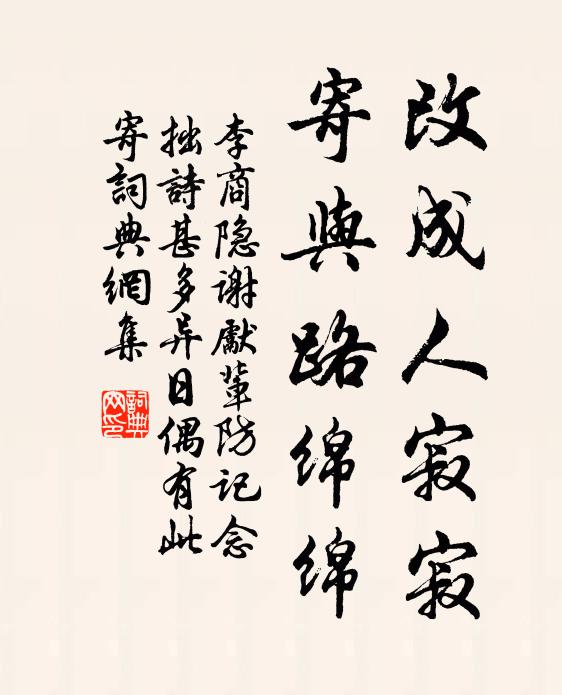 改成人寂寂
寄與路绵绵
李商隐谢獻輩防记念
拙詩甚多异日偶有此
寄詞典網集
詞典
网印